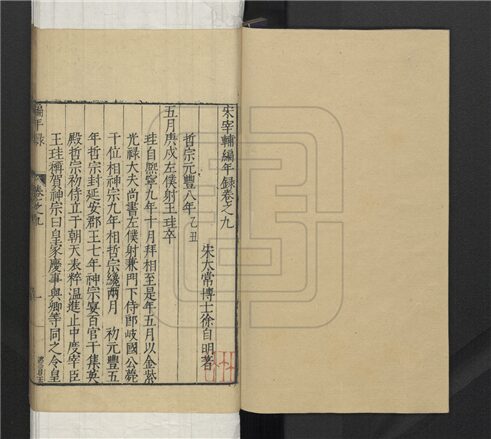 宋宰輔編年録卷之九
宋太常博士徐自明著
哲宗元豐八年乙丑
五月庚戌左僕射王珪卒
珪自熙寧九年十月拜相至是年五月以金紫
光禄大夫尚書左僕射兼門下侍郎岐國公薨
于位相神宗九年相哲宗纔兩月 初元豐五
年哲宗封延安郡王七年神宗宴百官于集英
殿哲宗初侍立于朝天表粹温進止中度宰臣
王珪榑賀神宗曰皇家慶事與卿等同之今皇
編年録 卷之九